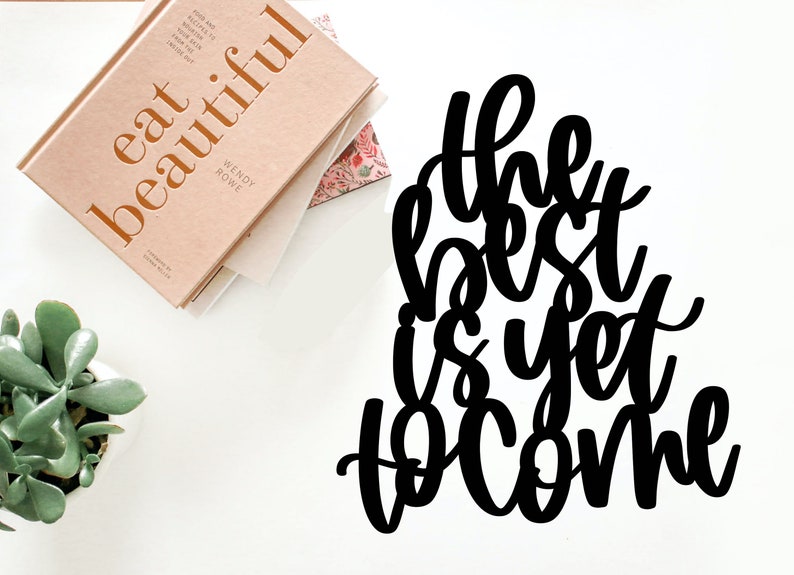 eat
beautiful
FOOD AND
RECIPES TO
NOURISH
YOUR SKIN
FROM THE
INSIDE OUT
WENDY
ROWE
FOREWORD BY
SIENNA MILLER
the
best
is yet
to come